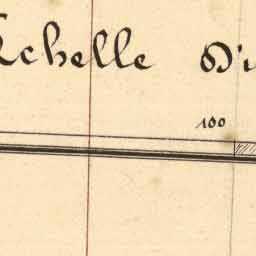 Echelle D'u
100